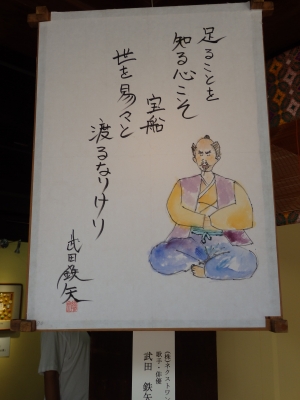 足ることを
知る心こそ
宝船
世を易々と
渡るなりけり
武田鉄矢
(株)ネクストワ
歌手・俳優
武田 鉄矢